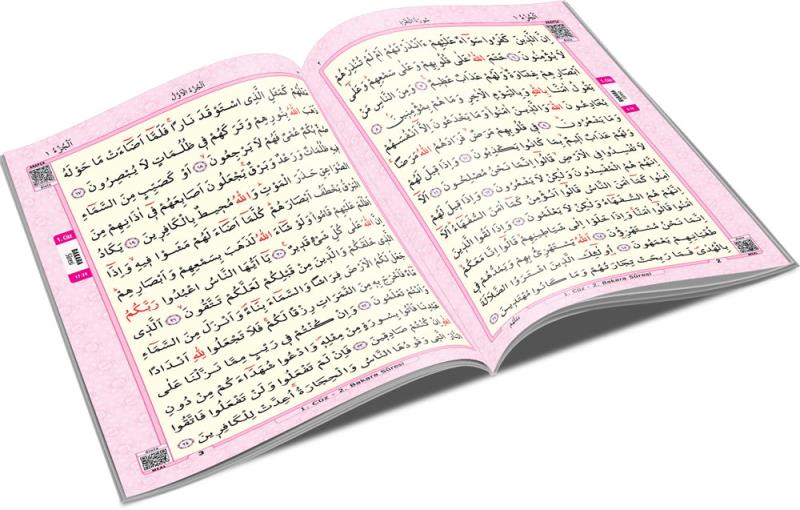 سُورَةُ الْبَقَرَةِ
اَلْجُزْءُ ١
اِنَّ الَّذِينَ كَفَرُوا سَوَاءٌ عَلَيْهِمْ ءَاَنْذَرْتَهُمْ اَمْ لَمْ تُنْذِرْهُمْ
لَا يُؤْمِنُونَ ٦ خَتَمَ اللهُ عَلٰى قُلُوبِهِمْ وَعَلٰى سَمْعِهِمْ وَعَلٰى
اَبْصَارِهِمْ غِشَاوَةٌ وَلَهُمْ عَذَابٌ عَظِيمٌ ٧ وَمِنَ النَّاسِ مَنْ
يَقُولُ اٰمَنَّا بِاللهِ وَبِالْيَوْمِ الْاٰخِرِ وَمَا هُمْ بِمُؤْمِنِينَ ٨
يُخَادِعُونَ اللهَ وَالَّذِينَ اٰمَنُوا وَمَا يَخْدَعُونَ اِلَّا اَنْفُسَهُمْ
وَمَا يَشْعُرُونَ ٩ فِي قُلُوبِهِمْ مَرَضٌ فَزَادَهُمُ اللهُ مَرَضًا
وَلَهُمْ عَذَابٌ اَلِيمٌ بِمَا كَانُوا يَكْذِبُونَ ١٠ وَاِذَا قِيلَ لَهُمْ
لَا تُفْسِدُوا فِي الْاَرْضِ قَالُوا اِنَّمَا نَحْنُ مُصْلِحُونَ ١١ اَلَا
اِنَّهُمْ هُمُ الْمُفْسِدُونَ وَلٰكِنْ لَا يَشْعُرُونَ ١٢ وَاِذَا قِيلَ لَهُمْ
اٰمِنُوا كَمَا اٰمَنَ النَّاسُ قَالُوا اَنُؤْمِنُ كَمَا اٰمَنَ السُّفَهَاءُ اَلَا
اِنَّهُمْ هُمُ السُّفَهَاءُ وَلٰكِنْ لَا يَعْلَمُونَ ١٣ وَاِذَا لَقُوا الَّذِينَ
اٰمَنُوا قَالُوا اٰمَنَّا وَاِذَا خَلَوْا اِلٰى شَيَاطِينِهِمْ قَالُوا اِنَّا مَعَكُمْ
اِنَّمَا نَحْنُ مُسْتَهْزِؤُنَ ١٤ اَللهُ يَسْتَهْزِئُ بِهِمْ وَيَمُدُّهُمْ فِي
طُغْيَانِهِمْ يَعْمَهُونَ ١٥ اُولٰئِكَ الَّذِينَ اشْتَرَوُا الضَّلَالَةَ
بِالْهُدٰى فَمَا رَبِحَتْ تِجَارَتُهُمْ وَمَا كَانُوا مُهْتَدِينَ ١٦
مَثَلُهُمْ
1. Cüz - 2. Bakara Sûresi
2
1. Cüz
BAKARA
MEAL
اَلْجُزْءُ الْاَوَّلُ
اَلْجُزْءُ ١
مَثَلُهُمْ كَمَثَلِ الَّذِي اسْتَوْقَدَ نَارًا فَلَمَّا اَضَاءَتْ مَا حَوْلَهُ
ذَهَبَ اللهُ بِنُورِهِمْ وَتَرَكَهُمْ فِي ظُلُمَاتٍ لَا يُبْصِرُونَ ١٧
صُمٌّ بُكْمٌ عُمْيٌ فَهُمْ لَا يَرْجِعُونَ ١٨ اَوْ كَصَيِّبٍ مِنَ السَّمَاءِ
فِيهِ ظُلُمَاتٌ وَرَعْدٌ وَبَرْقٌ يَجْعَلُونَ اَصَابِعَهُمْ فِي اٰذَانِهِمْ مِنَ
الصَّوَاعِقِ حَذَرَ الْمَوْتِ وَاللهُ مُحِيطٌ بِالْكَافِرِينَ ١٩ يَكَادُ
الْبَرْقُ يَخْطَفُ اَبْصَارَهُمْ كُلَّمَا اَضَاءَ لَهُمْ مَشَوْا فِيهِ وَاِذَا
اَظْلَمَ عَلَيْهِمْ قَامُوا وَلَوْ شَاءَ اللهُ لَذَهَبَ بِسَمْعِهِمْ وَاَبْصَارِهِمْ
اِنَّ اللهَ عَلٰى كُلِّ شَيْءٍ قَدِيرٌ ٢٠ يَا اَيُّهَا النَّاسُ اعْبُدُوا رَبَّكُمُ
الَّذِي خَلَقَكُمْ وَالَّذِينَ مِنْ قَبْلِكُمْ لَعَلَّكُمْ تَتَّقُونَ ٢١ اَلَّذِي
جَعَلَ لَكُمُ الْاَرْضَ فِرَاشًا وَالسَّمَاءَ بِنَاءً وَاَنْزَلَ مِنَ السَّمَاءِ
مَاءً فَاَخْرَجَ بِهِ مِنَ الثَّمَرَاتِ رِزْقًا لَكُمْ فَلَا تَجْعَلُوا لِلهِ اَنْدَادًا
وَاَنْتُمْ تَعْلَمُونَ ٢٢ وَاِنْ كُنْتُمْ فِي رَيْبٍ مِمَّا نَزَّلْنَا عَلٰى
عَبْدِنَا فَأْتُوا بِسُورَةٍ مِنْ مِثْلِهِ وَادْعُوا شُهَدَاءَكُمْ مِنْ دُونِ
اللهِ اِنْ كُنْتُمْ صَادِقِينَ ٢٣ فَاِنْ لَمْ تَفْعَلُوا وَلَنْ تَفْعَلُوا فَاتَّقُوا
النَّارَ الَّتِي وَقُودُهَا النَّاسُ وَالْحِجَارَةُ اُعِدَّتْ لِلْكَافِرِينَ ٢٤
1. Cüz - 2. Bakara Sûresi
3
1. Cüz
BAKARA
Sûresi
17-24
MEAL